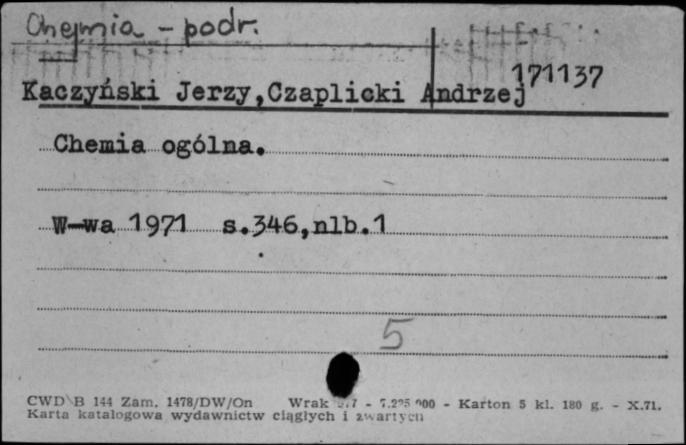 Chemia - podr.
171137
Kaczyński Jerzy,Czaplicki Andrzej
Chemia ogólna.
W-wa 1971 s.346,nlb.1
5
CWD B 144 Zam. 1478/DW/On Wrak - Karton 5 kl. 180 g. - X.71.
Karta katalogowa wydawnictw ciągłych i zwartych